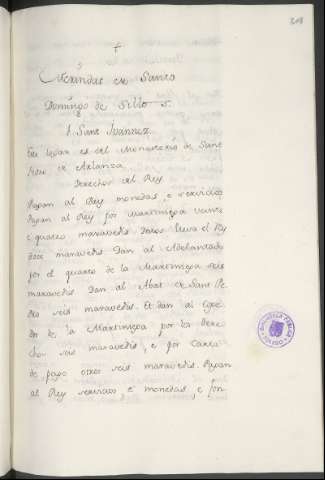 Merindat de Santo
Domingo de Silos.
S. Sant Juannez.
Este logar es del Monasterio de Sant
Pedro de Arlanza.
Derechos del Rey
Pagan al Rey monedas, e servicios
Pagan al Rey por Martiniega veinte
e quatro maravedis. Destos lleva el Rey
doce maravedis. Dan al Adelantado
por el quarto de la Martiniega seis
maravedis. Dan al Abat de Sant Pe
dro seis maravedis. Et dan al Coge
dor de la Martiniega por los Dere
chos seis maravedis, e por Carta
de pago otros seis maravedis. Pagan
al Rey servicios e monedas, e fon